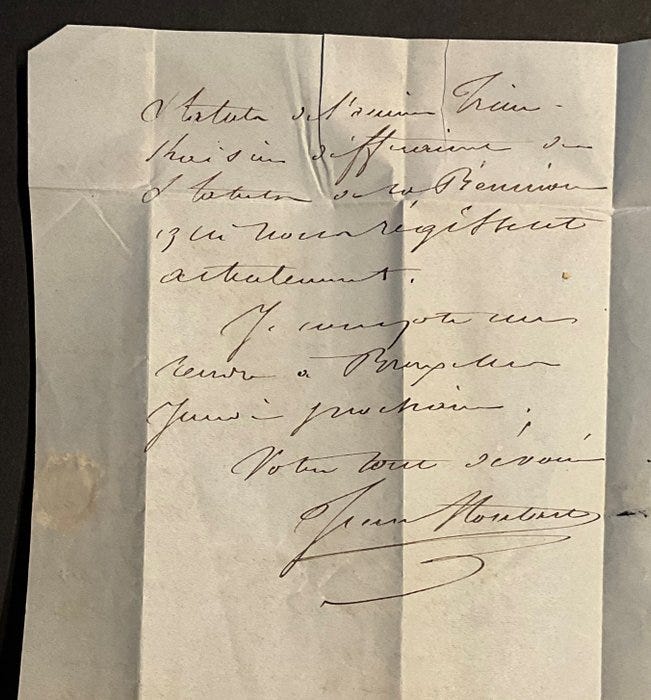 Statuts de l'
diffèrent des
Statuts de la Réunion
qui nous régissent
actuellement.
Je compte me
rendre à Bruxelles
Jeudi prochain.
Votre tout dévoué
Jean